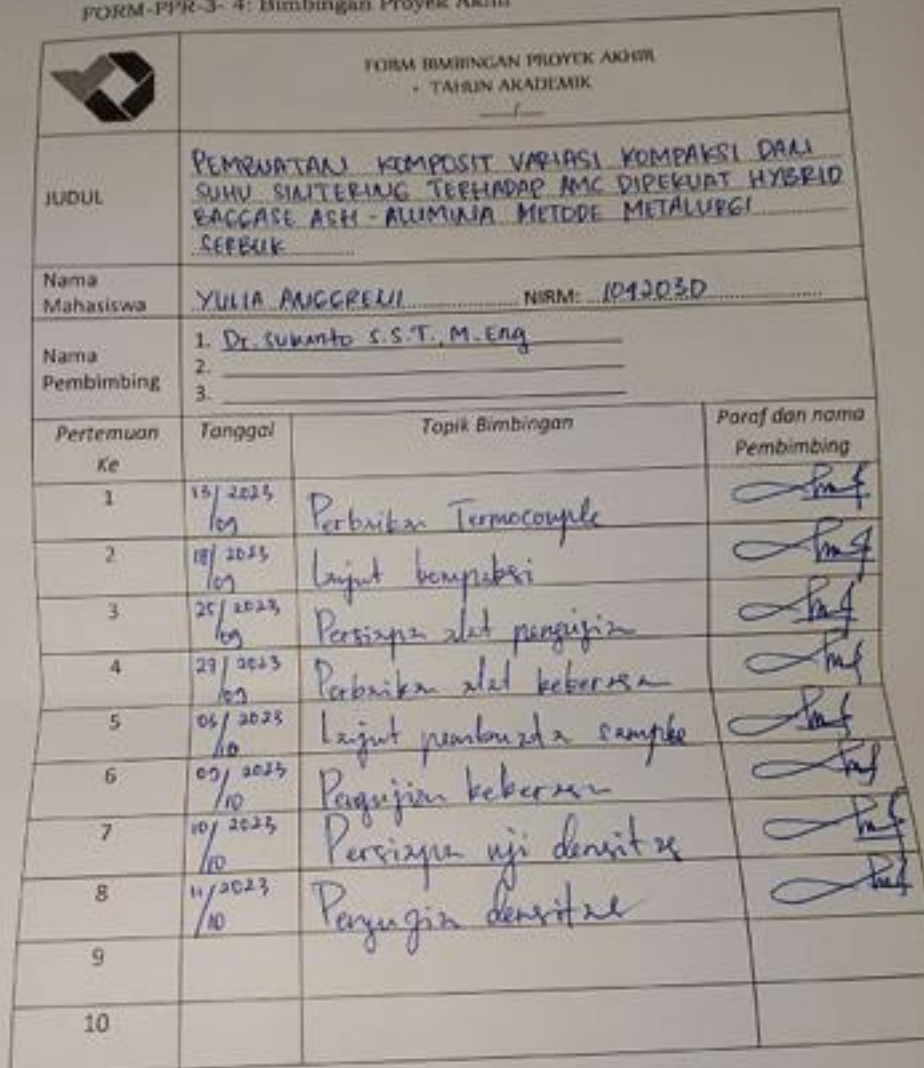 FORM-PPR-3- 4: Bimbingan Proyek Akhir
FORM BIMBINGAN PROYEK AKHIR
TAHUN AKADEMIK
__/__
JUDUL
PEMBUATAN KOMPOSIT VARIASI KOMPAKSI DAN
SUHU SINTERING TERHADAP AMC DIPEKUAT HYBRID
BAGGASE ASH - ALUMINA METODE METALURGI
SERBUK
Nama
Mahasiswa
YULIA ANGGRENI NIRM: 1042030
Nama
Pembimbing
1. Dr. Sukanto S.S.T., M.Eng
2.
3.
Pertemuan
Ke
Tanggal
Topik Bimbingan
Paraf dan nama
Pembimbing
1 /2023 /09 Perbaikan Termocouple
2 18/2023 /09 Lanjut kompaksi
3 25/2023 /09 Persiapan alat pengujian
4 /2023 /09 Perbaikan alat kekerasan
5 /2023 /10 Lanjut pembuatan sampel
6 09/2023 /10 Pengujian kekerasan
7 10/2023 /10 Persiapan uji densitas
8 11/2023 /10 Pengujian densitas
9
10